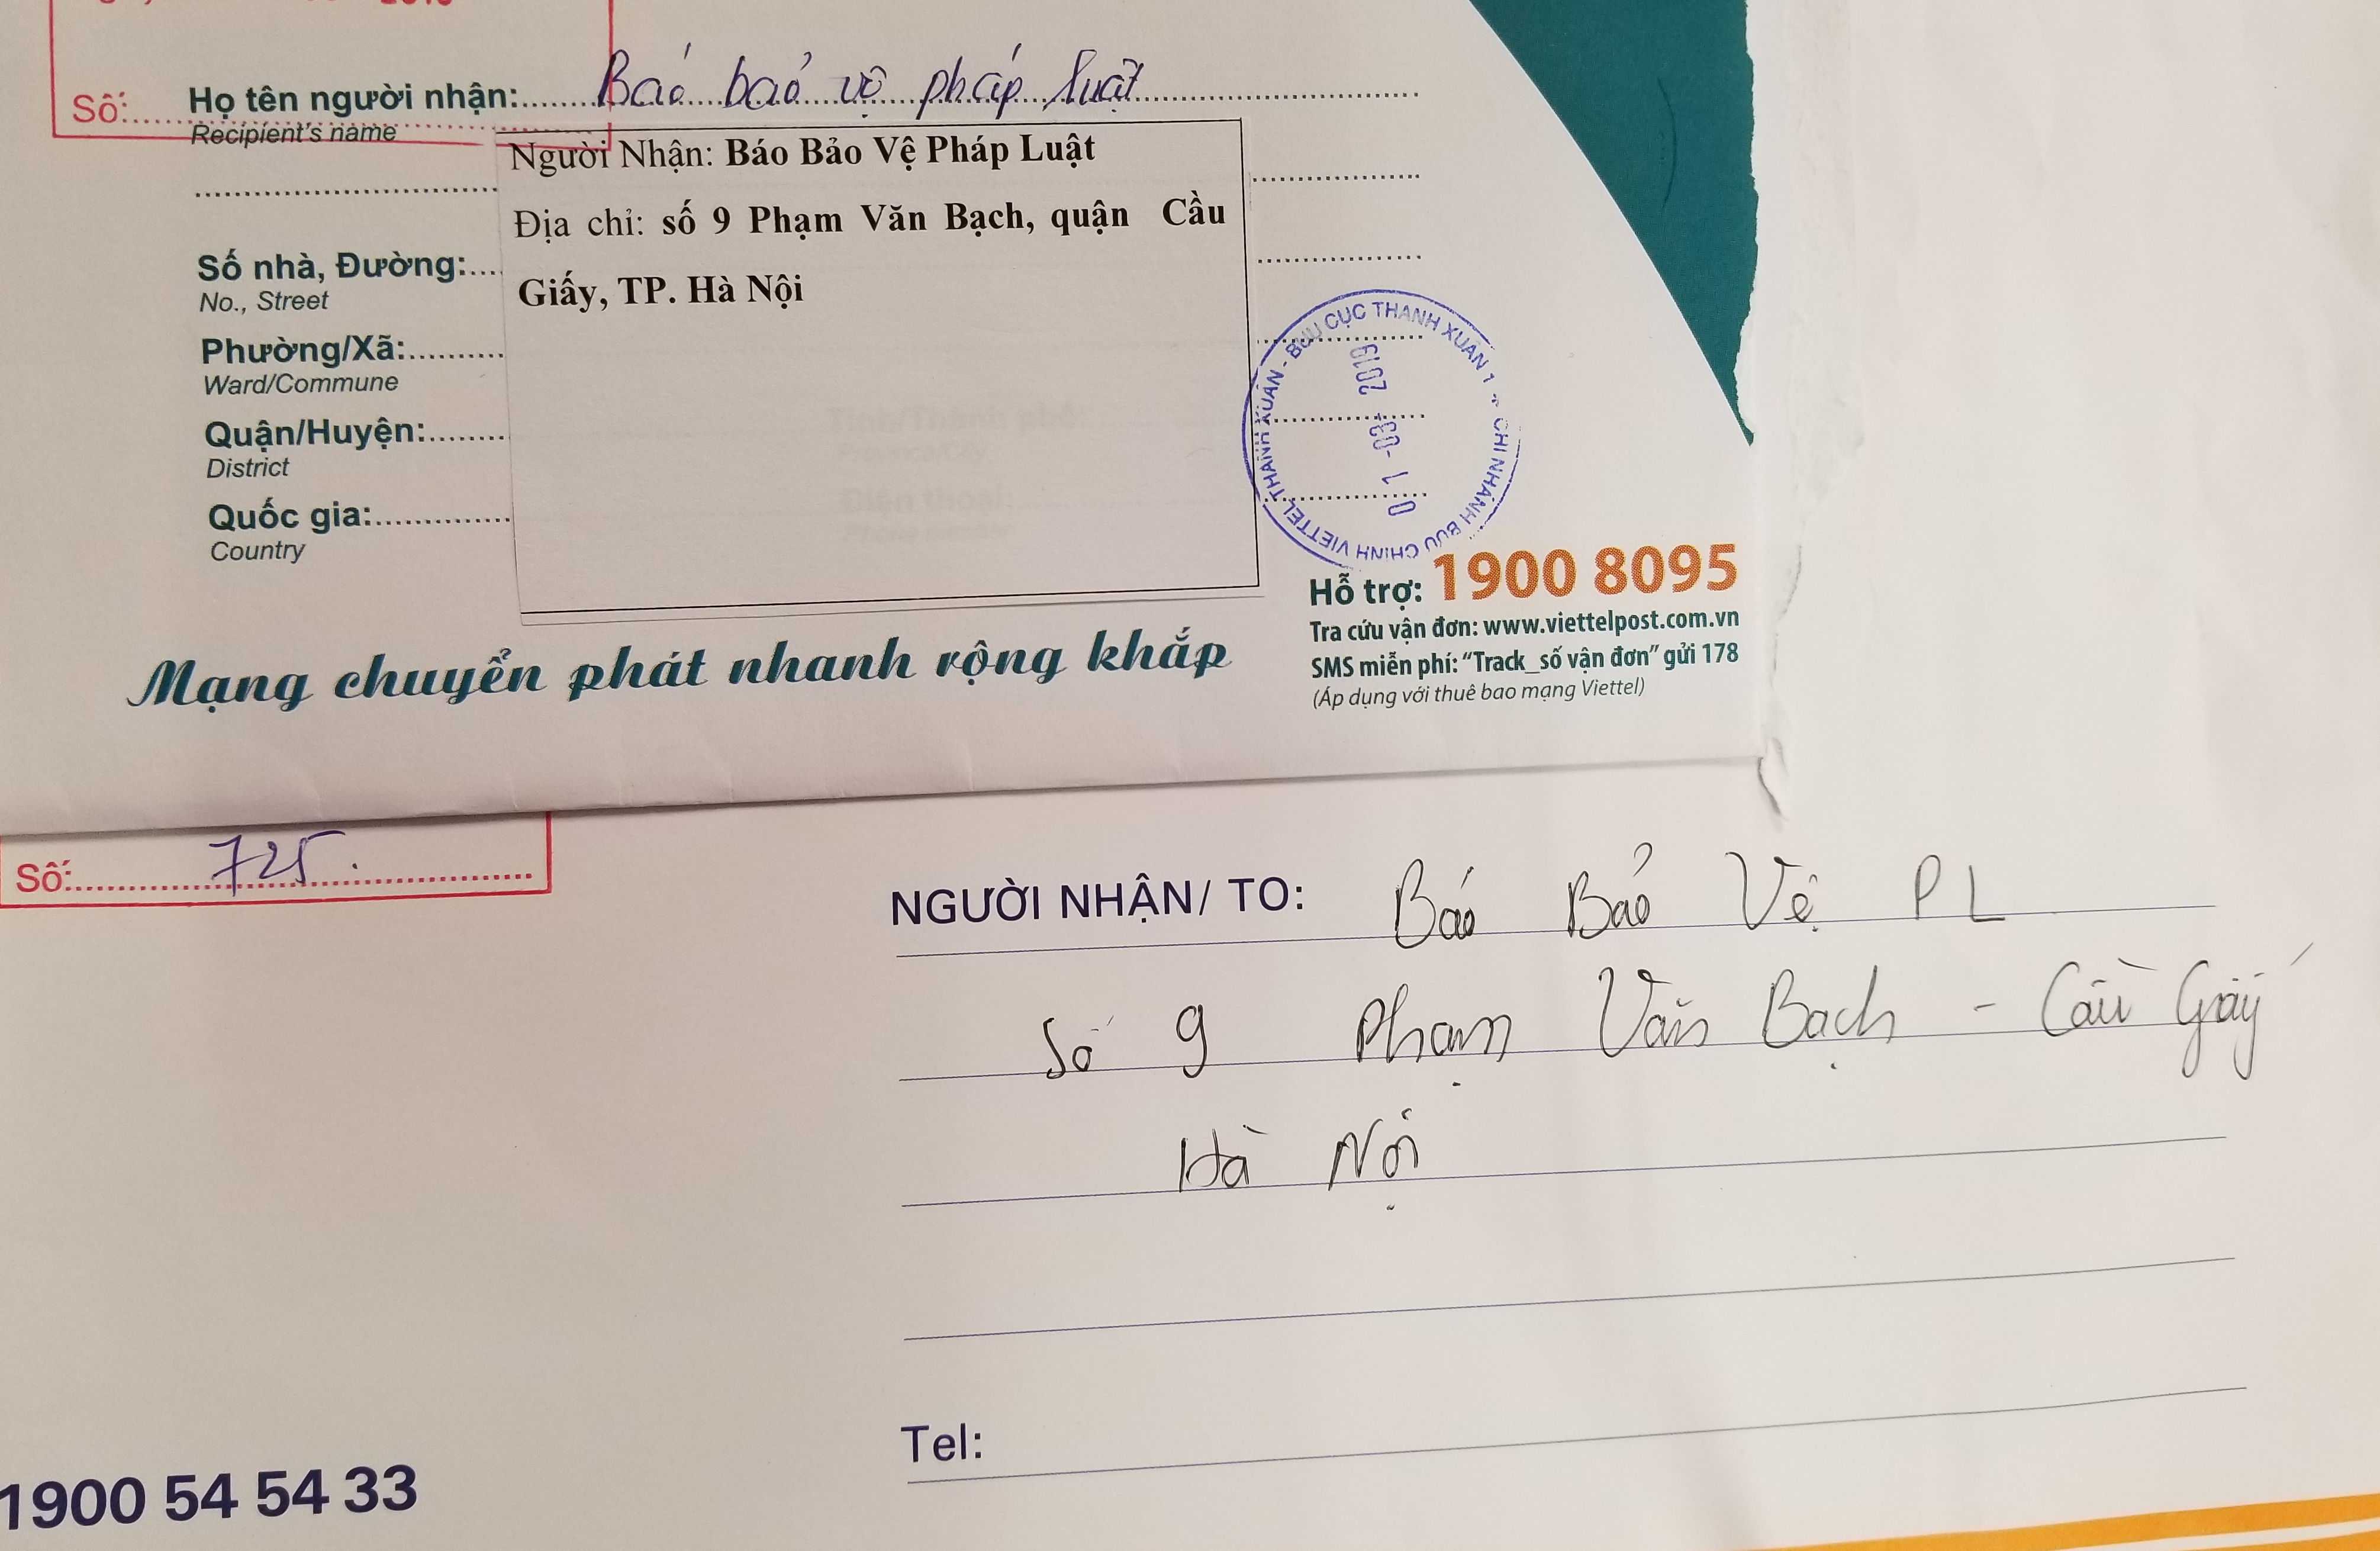 Số:
Họ tên người nhận: Báo bảo vệ pháp luật
Recipient's name
Người Nhận: Báo Bảo Vệ Pháp Luật
Địa chỉ: số 9 Phạm Văn Bạch, quận Cầu
Giấy, TP. Hà Nội
Số nhà, Đường:
No., Street
Phường/Xã:
Ward/Commune
Quận/Huyện:
District
Quốc gia:
Country
Tỉnh/Thành phố
Province/City
Điện thoại:
Phone number
CHI NHÁNH BƯU CHÍNH VIETTEL THANH XUÂN - BƯU CỤC THANH XUÂN 1
01 -03- 2019
Hỗ trợ: 1900 8095
Tra cứu vận đơn: www.viettelpost.com.vn
SMS miễn phí: “Track_số vận đơn” gửi 178
(Áp dụng với thuê bao mạng Viettel)
Mạng chuyển phát nhanh rộng khắp
Số: 725
NGƯỜI NHẬN/ TO: Báo Bảo Vệ PL
Số 9 Phạm Văn Bạch - Cầu Giấy
Hà Nội
Tel:
1900 54 54 33